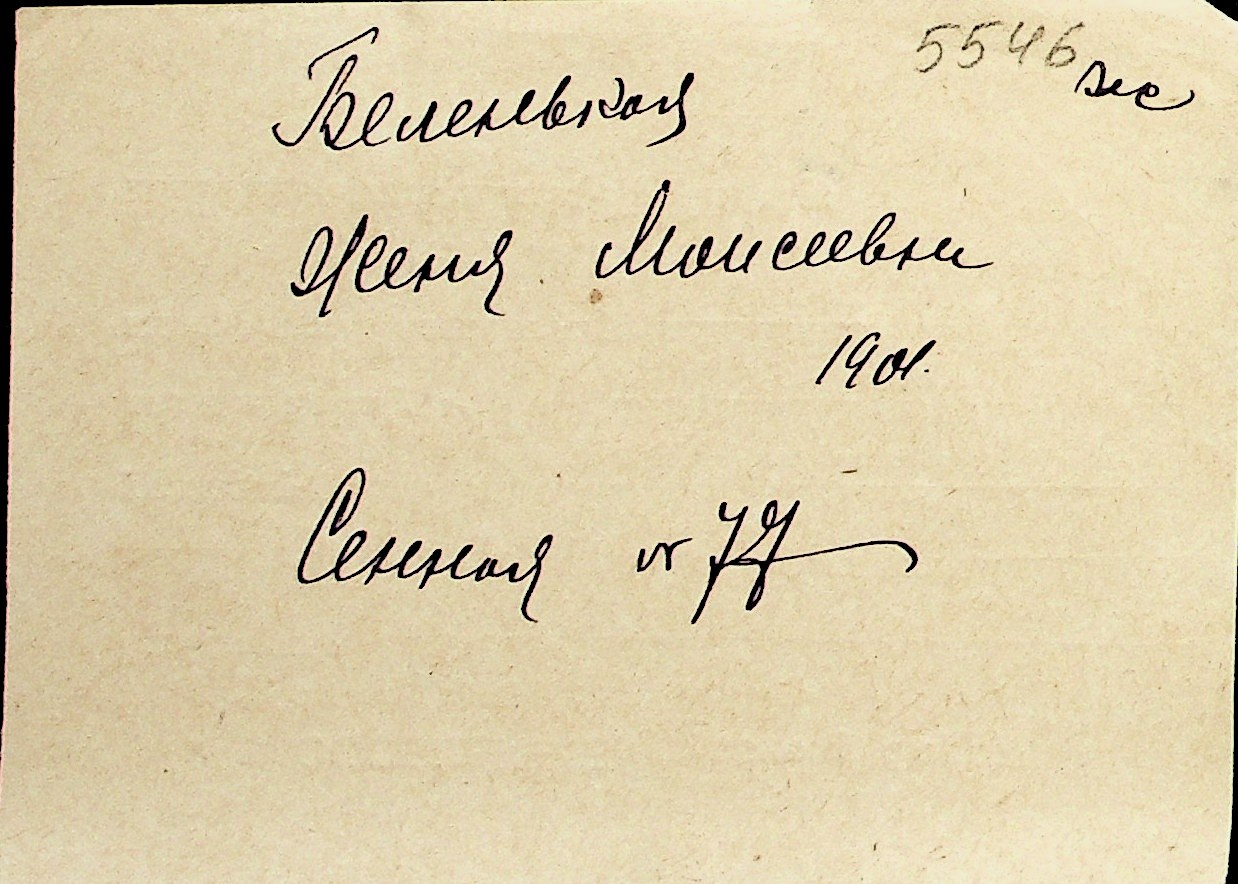 5546 же
Беленькая
Женя Моисеевна
1901.
Сенная № 77